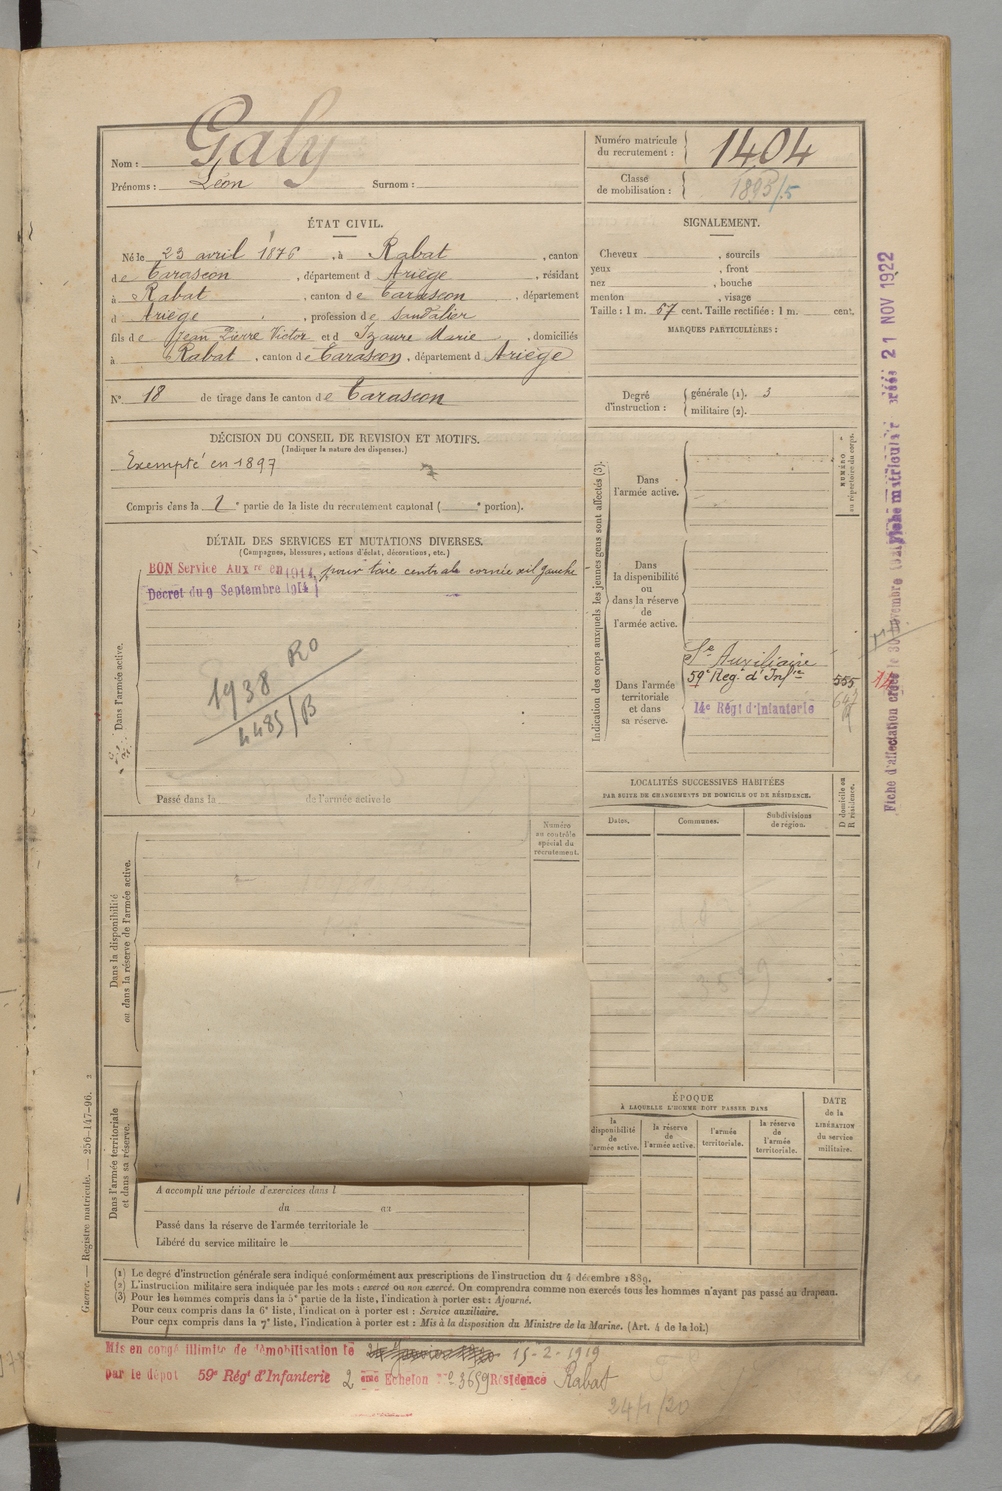 Nom : Galy
Prénoms : Léon Surnom :
Numéro matricule du recrutement : 1404
Classe de mobilisation : 1895/.5
ÉTAT CIVIL.
Né le 23 avril 1876, à Rabat, canton
de Tarascon, département d Ariège, résidant
à Rabat, canton de Tarascon, département
d Ariège, profession de Sandalier
fils de Jean Pierre Victor et d Izaure Marie, domiciliés
à Rabat, canton de Tarascon, département d Ariège
N° 18 de tirage dans le canton de Tarascon
SIGNALEMENT.
Cheveux , sourcils
yeux , front
nez , bouche
menton , visage
Taille : 1 m. 57 cent. Taille rectifiée : 1 m. cent.
MARQUES PARTICULIÈRES :
Degré d'instruction : générale (1). 3
militaire (2).
DÉCISION DU CONSEIL DE REVISION ET MOTIFS.
(Indiquer la nature des dispenses.)
Exempté en 1897
Compris dans la 2e partie de la liste du recrutement cantonal ( e portion).
DÉTAIL DES SERVICES ET MUTATIONS DIVERSES.
(Campagnes, blessures, actions d'éclat, décorations, etc.)
BON Service Aux re en 1914 pour taie centrale cornée œil gauche
Décret du 9 Septembre 1914
Dans l'armée active.
1938 RO
4485/B
Passé dans la de l'armée active le
Indication des corps auxquels les jeunes gens sont affectés (3).
Dans l'armée active.
Dans la disponibilité ou dans la réserve de l'armée active.
Dans l'armée territoriale et dans sa réserve.
Sce Auxiliaire
59e Reg. d'Infie 555
14e Régt d'Infanterie
NUMÉRO au répertoire du corps.
Fiche d'affectation créée le 30 novembre
Fiche matricule 21 NOV 1922
14
LOCALITÉS SUCCESSIVES HABITÉES
PAR SUITE DE CHANGEMENTS DE DOMICILE OU DE RÉSIDENCE.
Dates. Communes. Subdivisions de région.
D domicile ou R résidence.
Numéro au contrôle spécial du recrutement.
Dans la disponibilité ou dans la réserve de l'armée active.
3529
ÉPOQUE
À LAQUELLE L'HOMME DOIT PASSER DANS
la disponibilité de l'armée active.
la réserve de l'armée active.
l'armée territoriale.
la réserve de l'armée territoriale.
DATE de la LIBÉRATION du service militaire.
Dans l'armée territoriale et dans sa réserve.
A accompli une période d'exercices dans l
du au
Passé dans la réserve de l'armée territoriale le
Libéré du service militaire le
Guerre. — Registre matricule. — 256-147-96. 2
(1) Le degré d'instruction générale sera indiqué conformément aux prescriptions de l'instruction du 4 décembre 1889.
(2) L'instruction militaire sera indiquée par les mots : exercé ou non exercé. On comprendra comme non exercés tous les hommes n'ayant pas passé au drapeau.
(3) Pour les hommes compris dans la 5e partie de la liste, l'indication à porter est : Ajourné.
Pour ceux compris dans la 6e liste, l'indication à porter est : Service auxiliaire.
Pour ceux compris dans la 7e liste, l'indication à porter est : Mis à la disposition du Ministre de la Marine. (Art. 4 de la loi.)
Mis en congé illimité de démobilisation le 15-2-1919
par le dépôt 59e Régt d'Infanterie 2 eme Echelon No 3659 Résidence Rabat
24/1/20